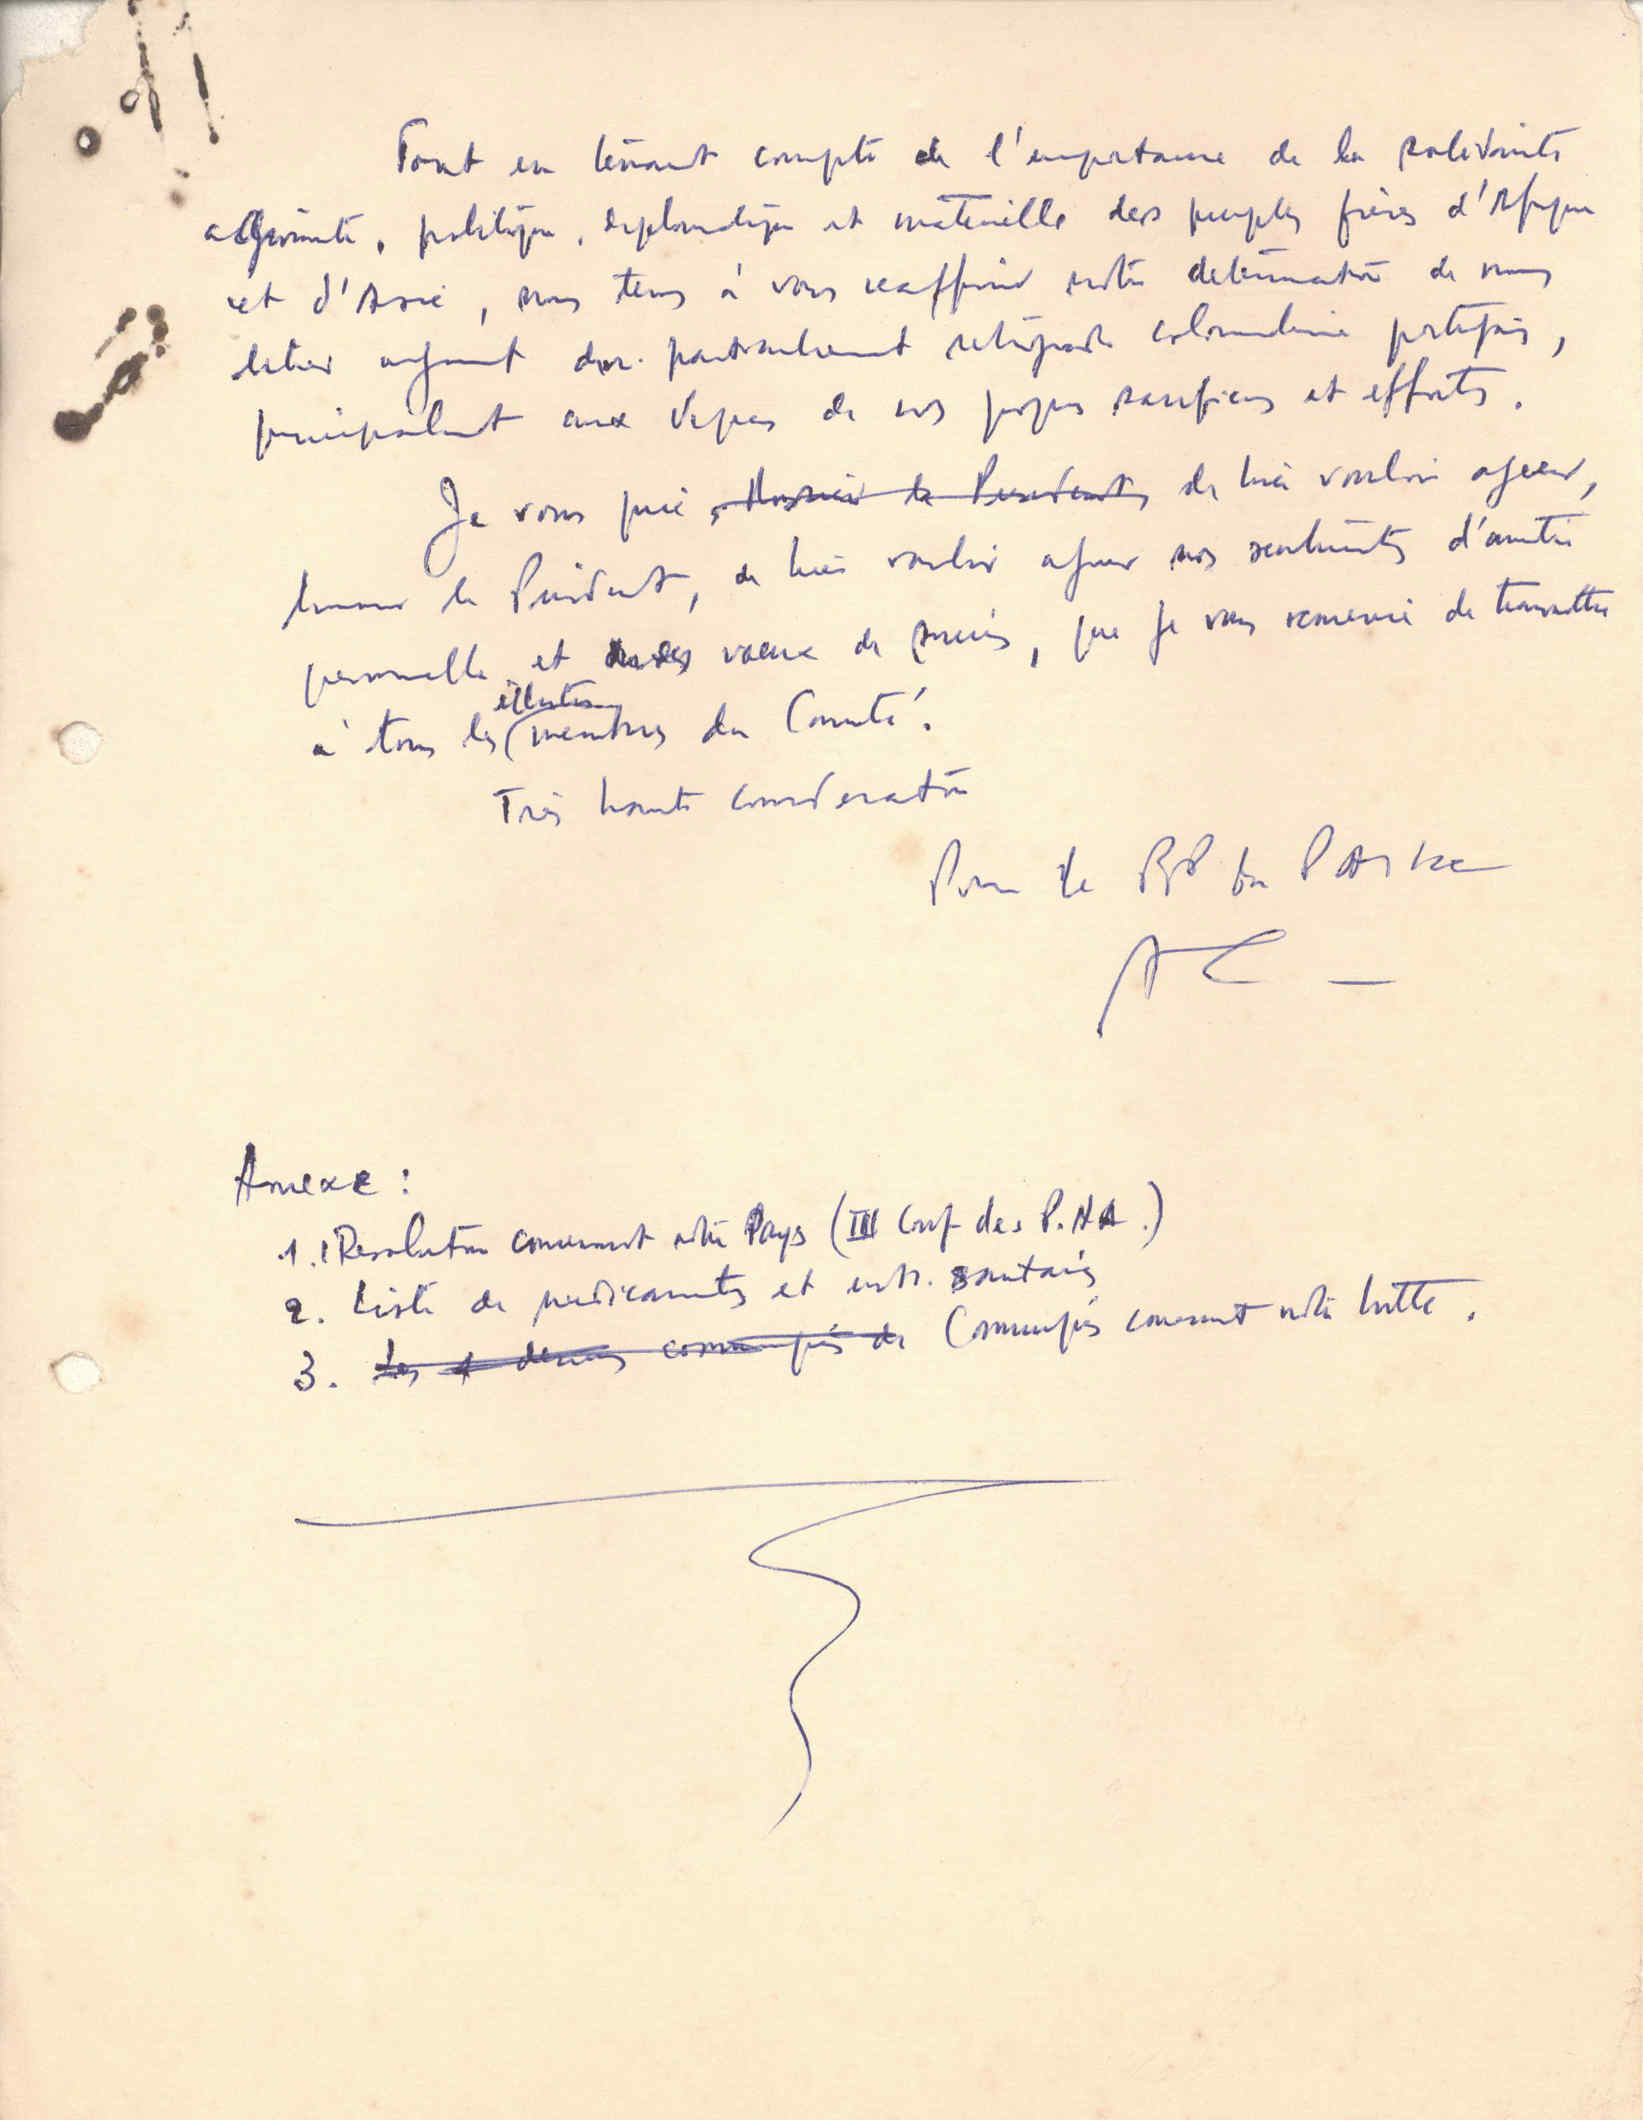 Tout en tenant compte de l'importance de la solidarité
agissante, politique, diplomatique et matérielle des peuples frères d'Afrique
et d'Asie, nous tenons à vous reaffirmer notre détermination de nous
liberer du colonialisme portugais,
principalement aux dépens de nos propres sacrifices et efforts.
Je vous prie, Monsieur le President, de bien vouloir agréer,
le Président, de bien vouloir agréer nos sentiments d'amitié
personnelle et vœux de succès, que je vous remercie de transmettre
illustres
à tous les membres du Comité.
Très haute consideration
Pour le BP du PAIGC
AC
Annexe :
1. Resolution concernant notre Pays (III Conf des P.N.A.)
2. Liste de medicaments et instr. sanitaires
3. Les 4 derniers communiqués de Communiqués concernant notre lutte.